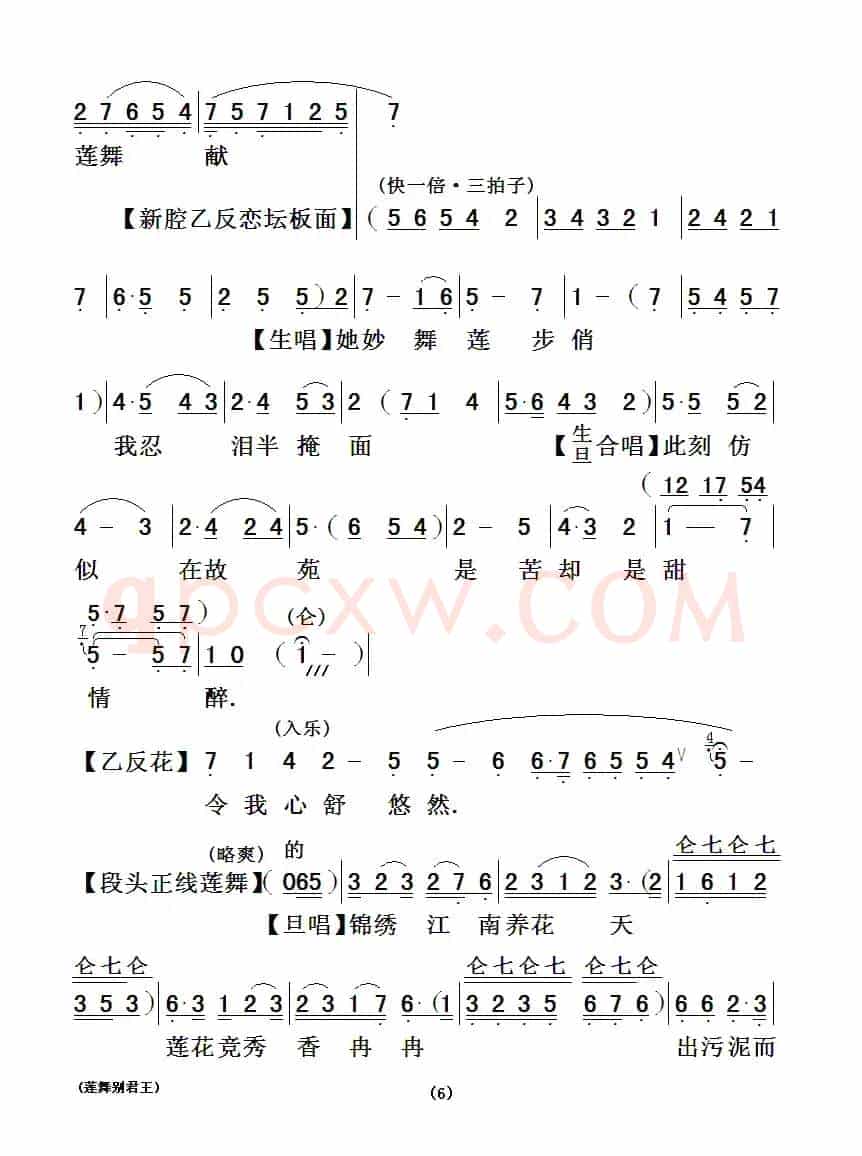 2 7 6 5 4 | 7 5 7 1 2 5 | 7
莲舞 献
(快一倍·三拍子)
【新腔乙反恋坛板面】( 5 6 5 4 2 | 3 4 3 2 1 | 2 4 2 1
7 | 6· 5 5 | 2 5 5 ) 2 | 7 - 1 6 | 5 - 7 | 1 - ( 7 | 5 4 5 7
【生唱】她妙 舞 莲 步 俏
1 ) | 4· 5 4 3 | 2· 4 5 3 | 2 ( 7 1 4 | 5· 6 4 3 2 ) | 5· 5 5 2
我忍 泪半 掩 面 【生旦合唱】此刻 仿
( 12 17 54
4 - 3 | 2· 4 2 4 | 5· ( 6 5 4 ) | 2 - 5 | 4· 3 2 | 1 — 7
似 在故 苑 是 苦 却 是 甜
5· 7 5 7 ) (仑)
7 5 - 5 7 | 1 0 ( i - ) |
情 醉.
(入乐)
【乙反花】 7 1 4 2 - 5 5 - 6 6· 7 6 5 5 4 ∨ 4 5 -
令 我 心 舒 悠 然.
(略爽) 的 仑七仑七
【段头正线莲舞】( 065 ) | 3 2 3 2 7 6 | 2 3 1 2 3· ( 2 | 1 6 1 2
【旦唱】锦绣 江 南养花 天
仑七仑 仑七仑七 仑七仑
3 5 3 ) | 6· 3 1 2 3 | 2 3 1 7 6· ( 1 | 3 2 3 5 6 7 6 ) | 6 6 2· 3
莲花竞秀 香 冉 冉 出污泥而
(莲舞别君王) (6)
qbcxw.COM